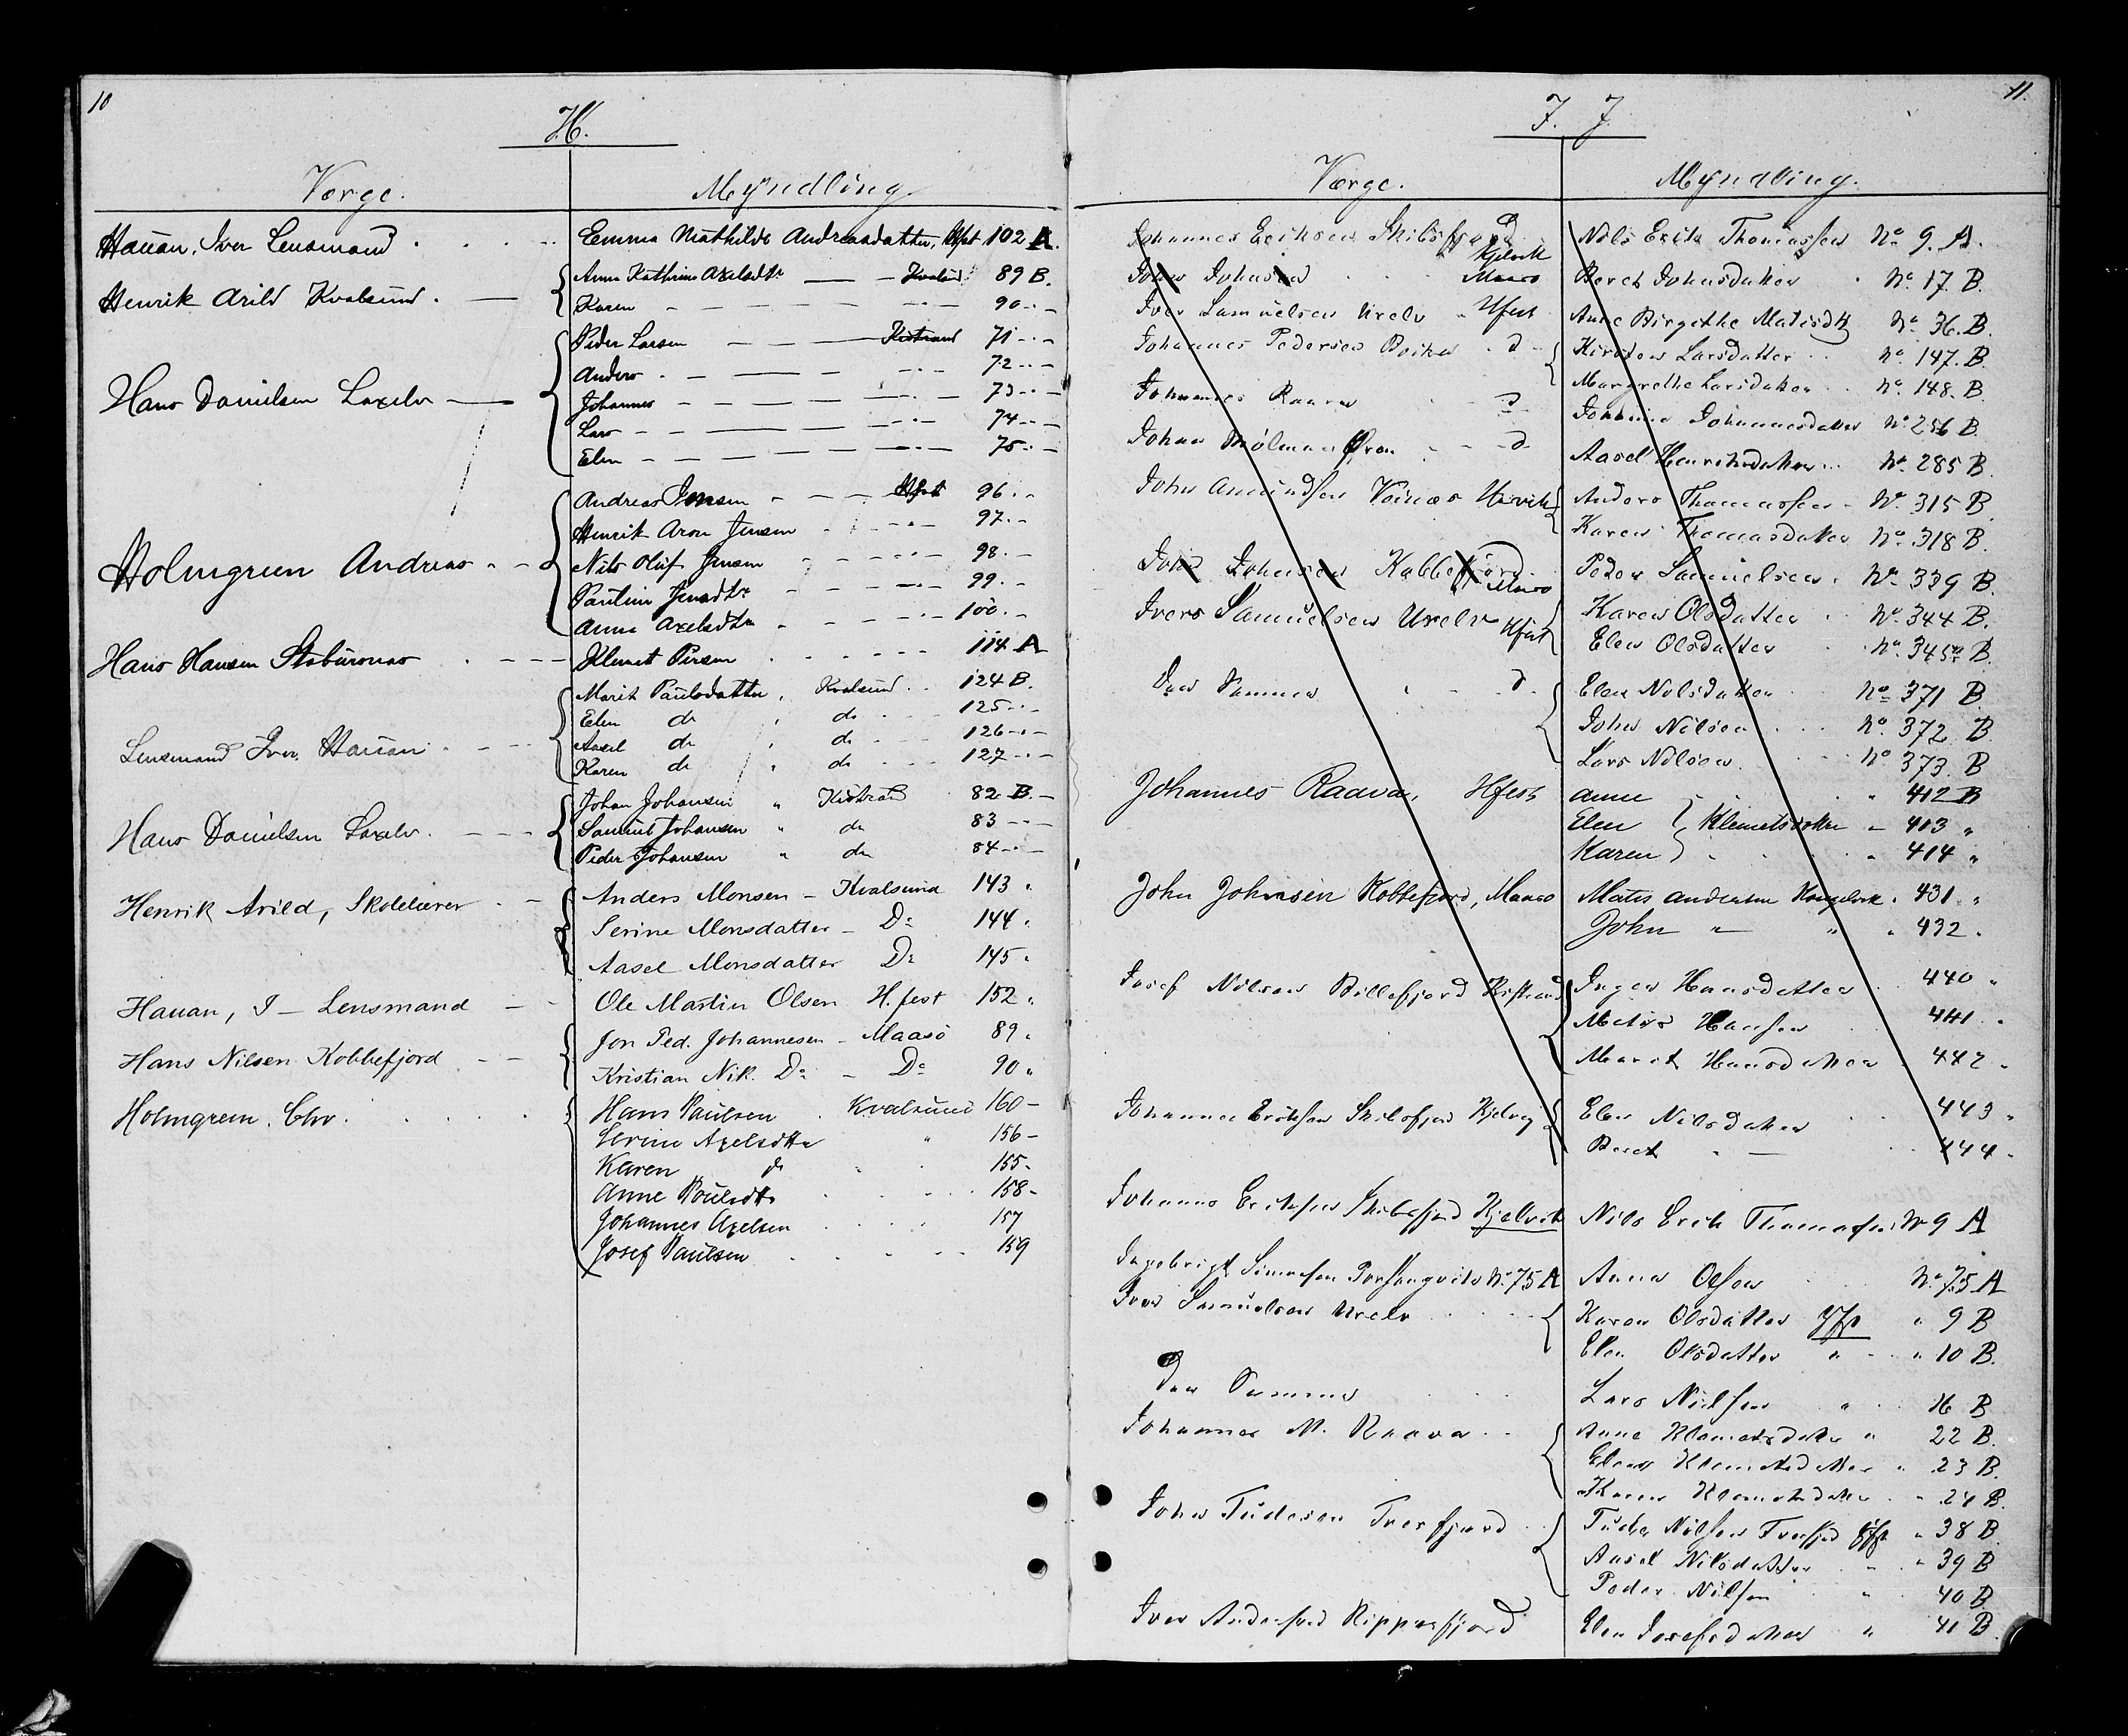 10
H.
Værge. Myndling
Hauan, Iver Lensmand Emma Mathilde Andreasdatter, Hfst 102 A.
Henrik Arild Kvalsund. Anna Kathrine Axelsdtr Kvalsd 89 B.
Karen 90
Hans Danielsen Laxelv Peder Larsen Kistrand 71
Anders 72
Johannes 73
Lars 74
Elen 75
Holmgreen Andreas Andreas Jensen Hfst 96
Henrik Aron Jensen 97
Nils Oluf Jensen 98
Pauline Jensdtr 99
Anna Axelsdtr 100
Hans Hansen Stabursnæs Klemet Persen 114 A
Lensmand Iver Hauan Marit Paulsdatter, Kvalsund 124 B.
Elen do do 125
Aasel do do 126
Karen do do 127
Hans Danielsen Laxelv. Johan Johansen " Kistrand 82 B.
Samuel Johansen " do 83
Peder Johansen " do 84
Henrik Arild, Skolelærer Anders Monsen - Kvalsund 143 "
Serine Monsdatter - Do 144 "
Aasel Monsdatter Do 145 "
Hauan, I - Lensmand Ole Martin Olsen H.fest 152 "
Hans Nilsen Kobbefjord Jon Ped. Johannesen - Maasö 89 "
Kristian Nik. Do - Do 90 "
Holmgreen, Chr. Hans Paulsen Kvalsund 160 -
Serine Axelsdtr " 156 -
Karen do 155 -
Anne Poulsdtr 158 -
Johannes Axelsen 157
Josef Paulsen 159
11.
I. J
Værge. Myndling.
Johannes Eriksen Skibsfjord Kjelvik Nils Erik Thomassen No 9. A.
John Johnsen Maasø Beret Johnsdatter No 17. B.
Iver Samuelsen Urelv Hfest Anne Birgithe Matisdtr No 36. B.
Johannes Pedersen do Kirsten Larsdatter No 147. B.
Margrethe Larsdatter No 148. B.
Johannes Raava do Johannesdatter No 256 B.
Johan do Aasel Henriksdatter No 285 B.
John Amundsen Anders Thomassen No 315 B
Karen Thomasdatter No 318 B.
John Johnsen Kobbefjord Maasø Peder Samuelsen No 339 B.
Ivers Samuelsen Urelv Hfest Karen Olsdatter No 344 B.
Elen Olsdatter No 345 B.
Den Samme do Elen Nilsdatter No 371 B.
John Nilsen No 372 B
Lars Nilsen No 373. B
Johannes Raava, Hfest Anne " 412 B
Elen Klemetsdatter - 413 "
Karen " 414 "
John Johnsen Kobbefjord, Maasø Matis Andersen " 431 "
John " " " 432 "
Josef Nilsen Billefjord Kistrand Inger Hansdatter 440 "
Matis Hansen 441 "
Marit Hansdatter 442 "
Johannes Eriksen Skibsfjord Kjelvig Elen Nilsdatter 443 "
Beret " 444 "
Johannes Eriksen Skibsfjord Kjelvik Nils Erik Thomassen No 9 A
Ingebrigt Simonsen Porsangvik No 75 A Anna Olsen No 75 A
Iver Samuelsen Urelv Karen Olsdatter Hfst " 9 B
Elen Olsdatter " " 10 B.
Den Samme Lars Nilsen " 16 B
Johannes M. Raava Anne Klemetsdatter " 22 B.
Elen Klemetsdatter " 23 B.
Karen Klemetsdatter " 24 B.
John Tudesen Tude Nilsen Hfst " 38 B
Aasel Nilsdatter " 39 B
Peder Nilsen " 40 B
Iver Andersen Ripperfjord Elen Josefsdatter " 41 B.